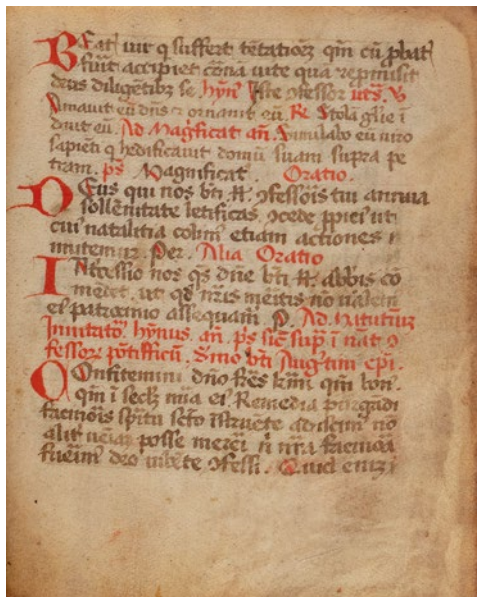 Beat᷒ uir q suffert tētationē qm̄ cū ꝓbat᷒
fuīt accipiet corōnā uite quā repmisit
deus diligētibꝫ se hȳn᷒ Iste ɔfessor uers. ℣
Amauit eū dn̄s ⁊ ornauit eū. Re Stolā glīe ī
duit eū. Ad Mag̅ficat an̄. Simulabo eū uiro
sapiēti q hedificauit domū suam supra pe
tram. p̄s Magnificat. Oratio.
Deus qui nos bt̄i .N. ɔfessōis tui annua
sollēnitate letificas. ɔcede ꝓpici᷒ ut
cui᷒ natalitia colim᷒ etiam actiones i
mitemur. Per. Alia Oratio
Intcessio nos qs dn̄e bt̄i .N. abb̄is cō
mēdet. ut qd̄ nr̄is meritis nō ualem᷒
ei᷒ patrocinio assequam᷒. P. Ad Matutinꝫ
Inuitatō. hȳnus. an̄. p̄s sic̄ sup᷒ ī nat ɔ
fessorꝫ pōtifficū. Sermo bt̄i Aug᷒tini epī.
Confitemini dn̄o frēs kr̄mi qm̄ bon᷒
qm̄ ī secl̄ mīa ei᷒ Remedia purgādi
facinoīs spītu scto īstruēte
posse merēi n̄ nr̄a facinora
fuerim᷒ deo iubēte ɔfessi. Quid eniꝫ